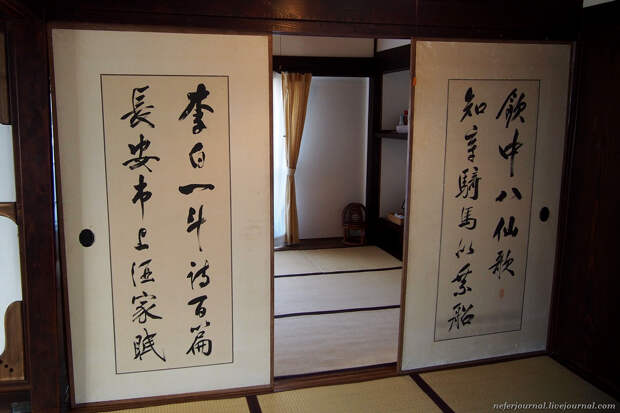 飲中八仙歌
知章騎馬似乗船
李白一斗詩百篇
長安市上酒家眠
neferjournal.livejournal.com